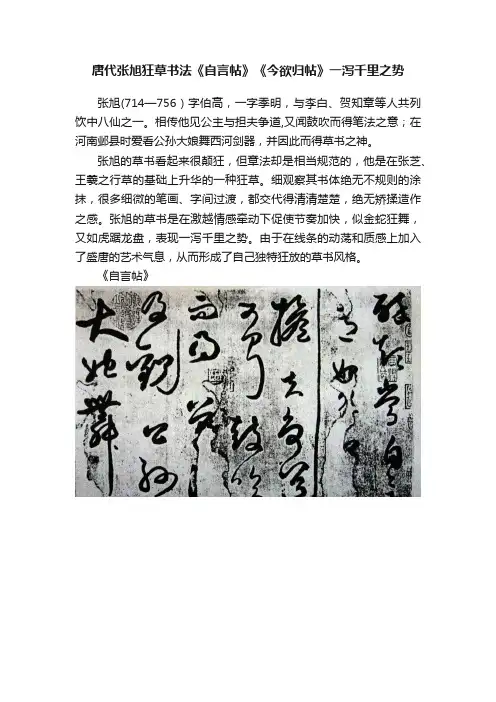 唐代张旭狂草书法《自言帖》《今欲归帖》一泻千里之势
张旭(714—756 ) 字伯高，一字季明，与李白、贺知章等人共列
饮中八仙之一。相传他见公主与担夫争道,又闻鼓吹而得笔法之意；在
河南邺县时爱看公孙大娘舞西河剑器，并因此而得草书之神。
张旭的草书看起来很颠狂，但章法却是相当规范的，他是在张芝、
王羲之行草的基础上升华的一种狂草。细观察其书体绝无不规则的涂
抹，很多细微的笔画、字间过渡，都交代得清清楚楚，绝无娇揉造作
之感。张旭的草书是在激越情感牵动下促使节奏加快，似金蛇狂舞，
又如虎踞龙盘，表现一泻千里之势。由于在线条的动荡和质感上加入
了盛唐的艺术气息，从而形成了自己独特狂放的草书风格。
《自言帖》
醉顛嘗自
擔夫爭道
鼓吹
而得筆
及觀公孫
大娘舞